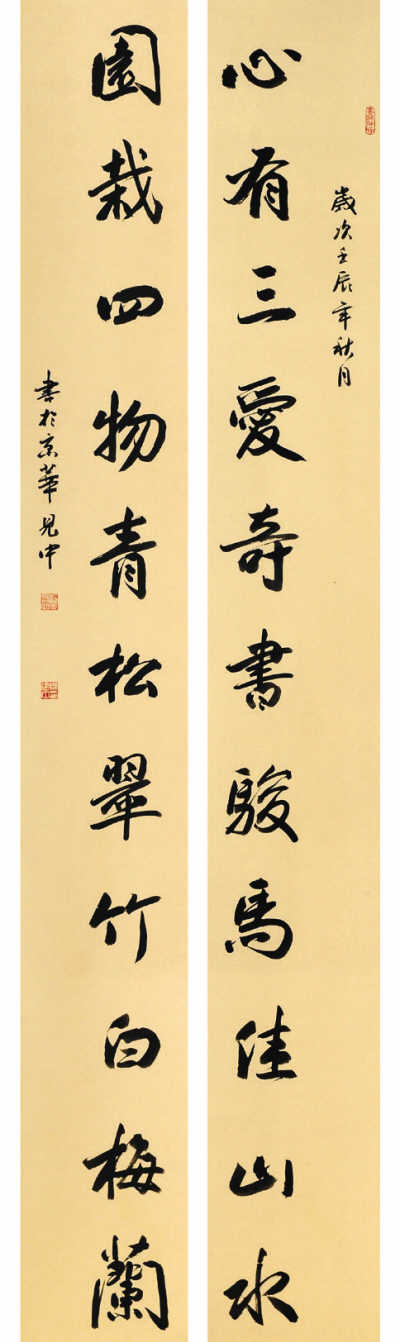 歲次壬辰年秋月
心有三愛奇書駿馬佳山水
園栽四物青松翠竹白梅蘭
書於京華見中